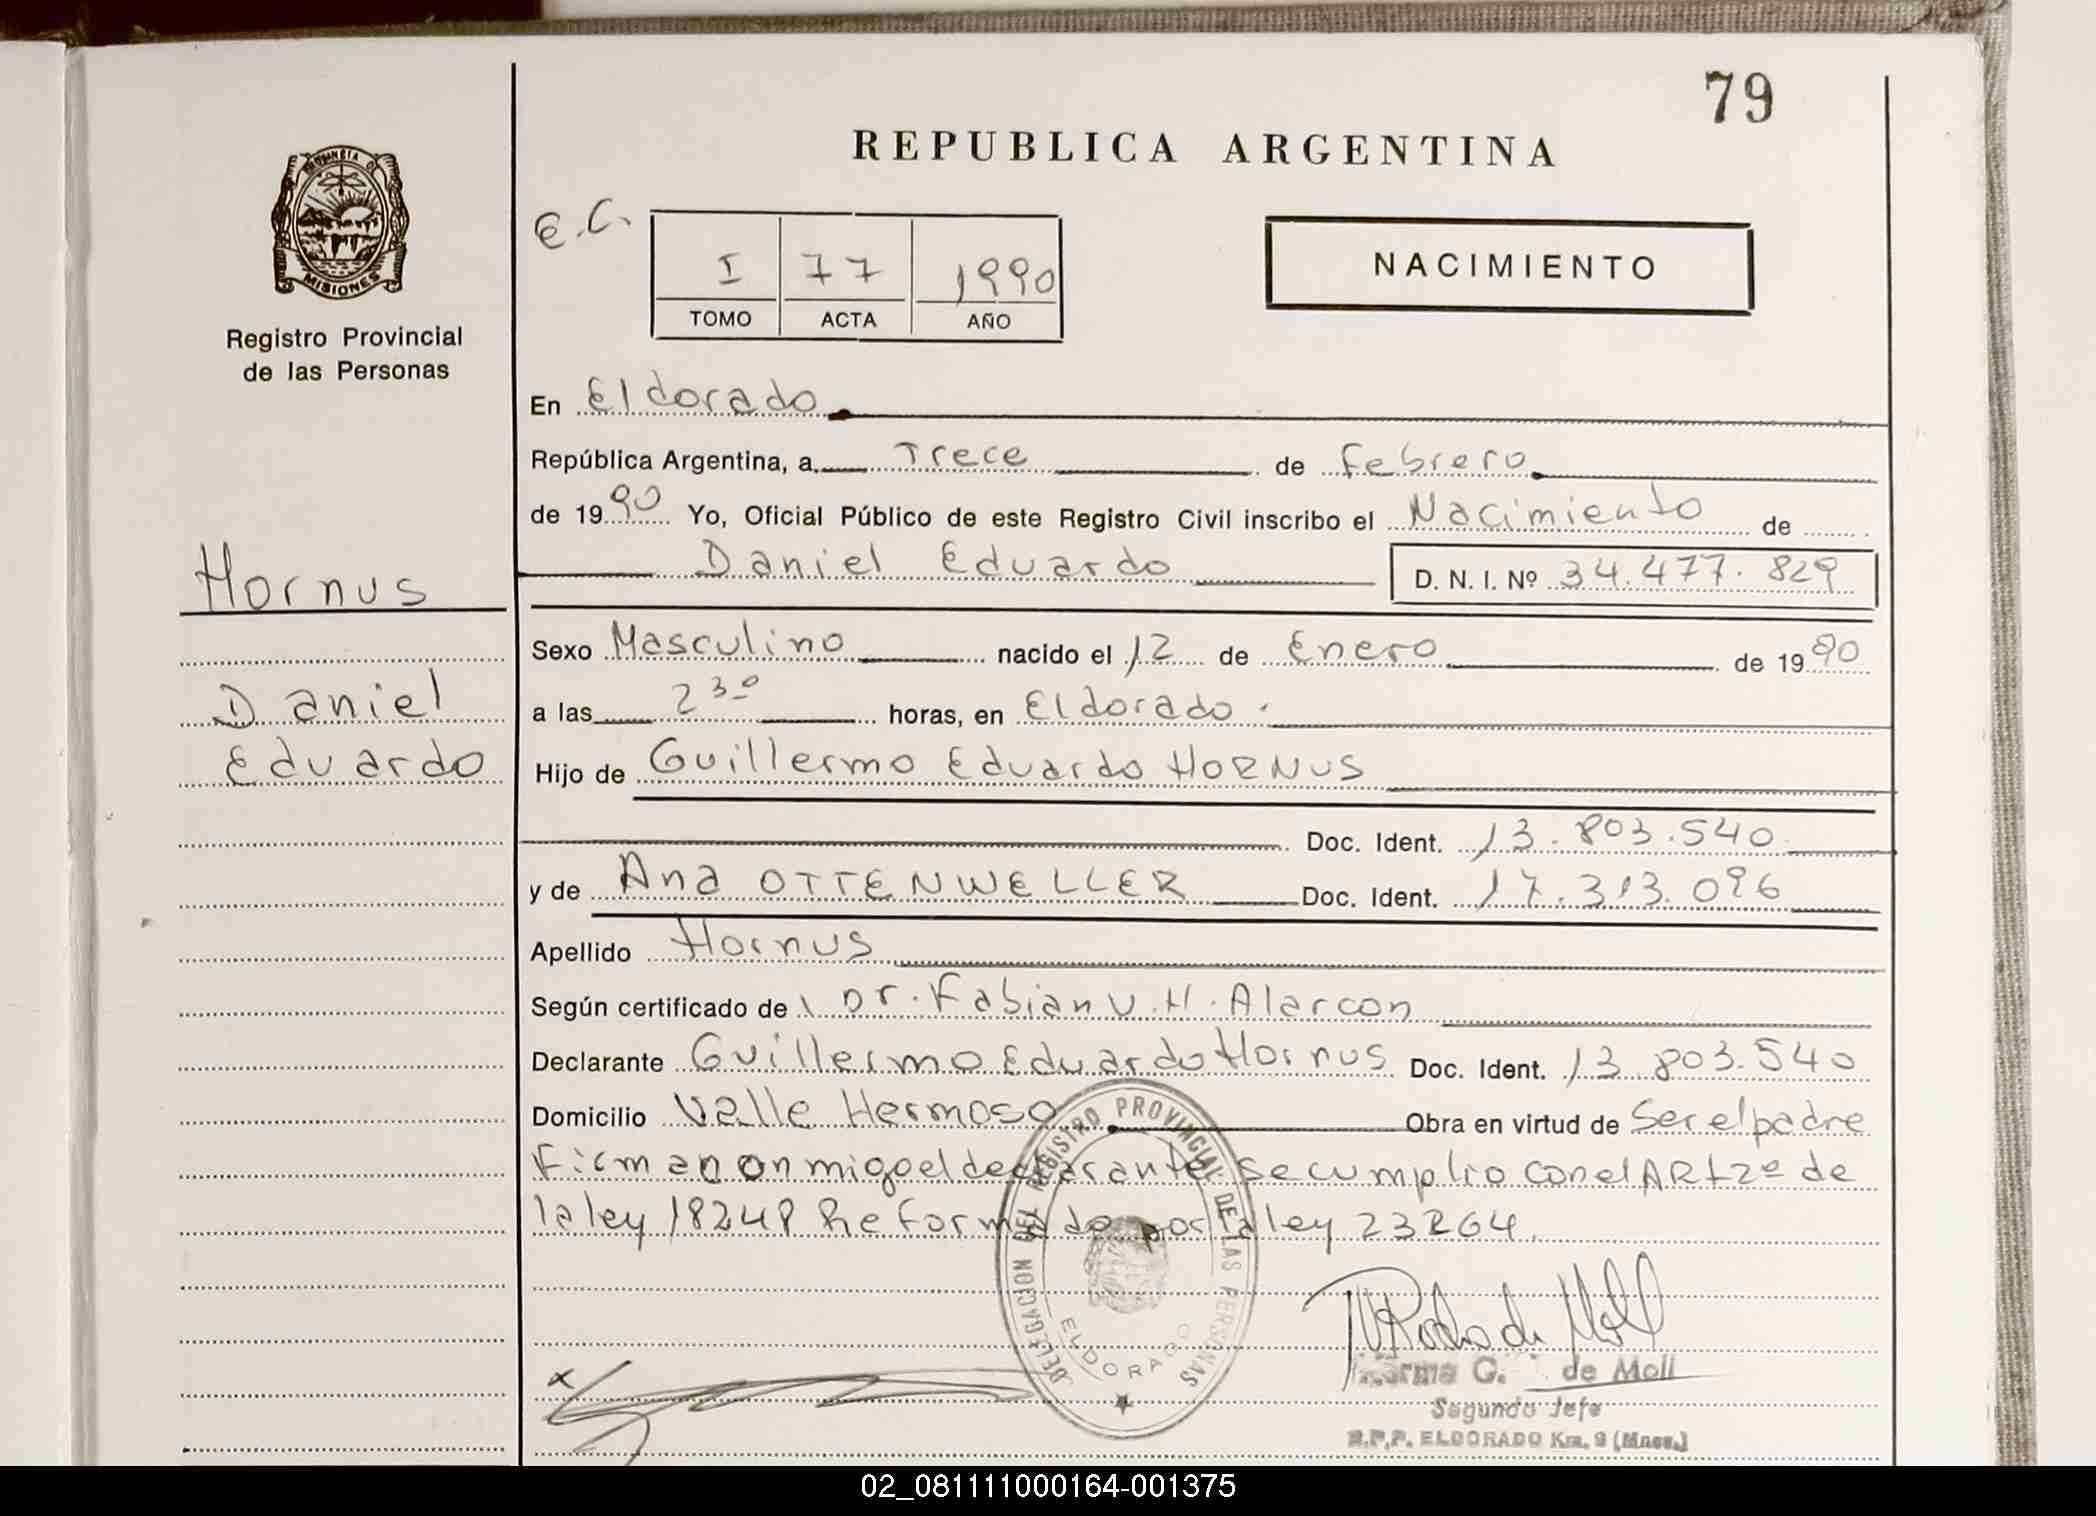 79
REPUBLICA ARGENTINA
PROVINCIA D
MISIONES
Registro Provincial
de las Personas
E.C.
I 77 1990
TOMO ACTA AÑO
NACIMIENTO
En Eldorado
República Argentina, a Trece de Febrero
de 1990 Yo, Oficial Público de este Registro Civil inscribo el Nacimiento de
Daniel Eduardo D. N. I. Nº 34.477.829
Hornus
Daniel
Eduardo
Sexo Masculino nacido el 12 de Enero de 1990
a las 23º horas, en Eldorado.
Hijo de Guillermo Eduardo HORNUS
Doc. Ident. 13.803.540
y de Ana OTTENWELLER Doc. Ident. 17.313.096
Apellido Hornus
Según certificado de Dr. Fabian V.H. Alarcon
Declarante Guillermo Eduardo Hornus Doc. Ident. 13.803.540
Domicilio Valle Hermoso Obra en virtud de Ser el padre
Firman conmigo el declarante Se cumplio con el ARt 2º de
la ley 18248 Reformada por la ley 23264
DELEGACION DEL REGISTRO PROVINCIAL DE LAS PERSONAS
ELDORADO
x
Norma C. de Moll
Segundo Jefe
R.P.P. ELDORADO Km. 9 (Mnes.)
02_081111000164-001375